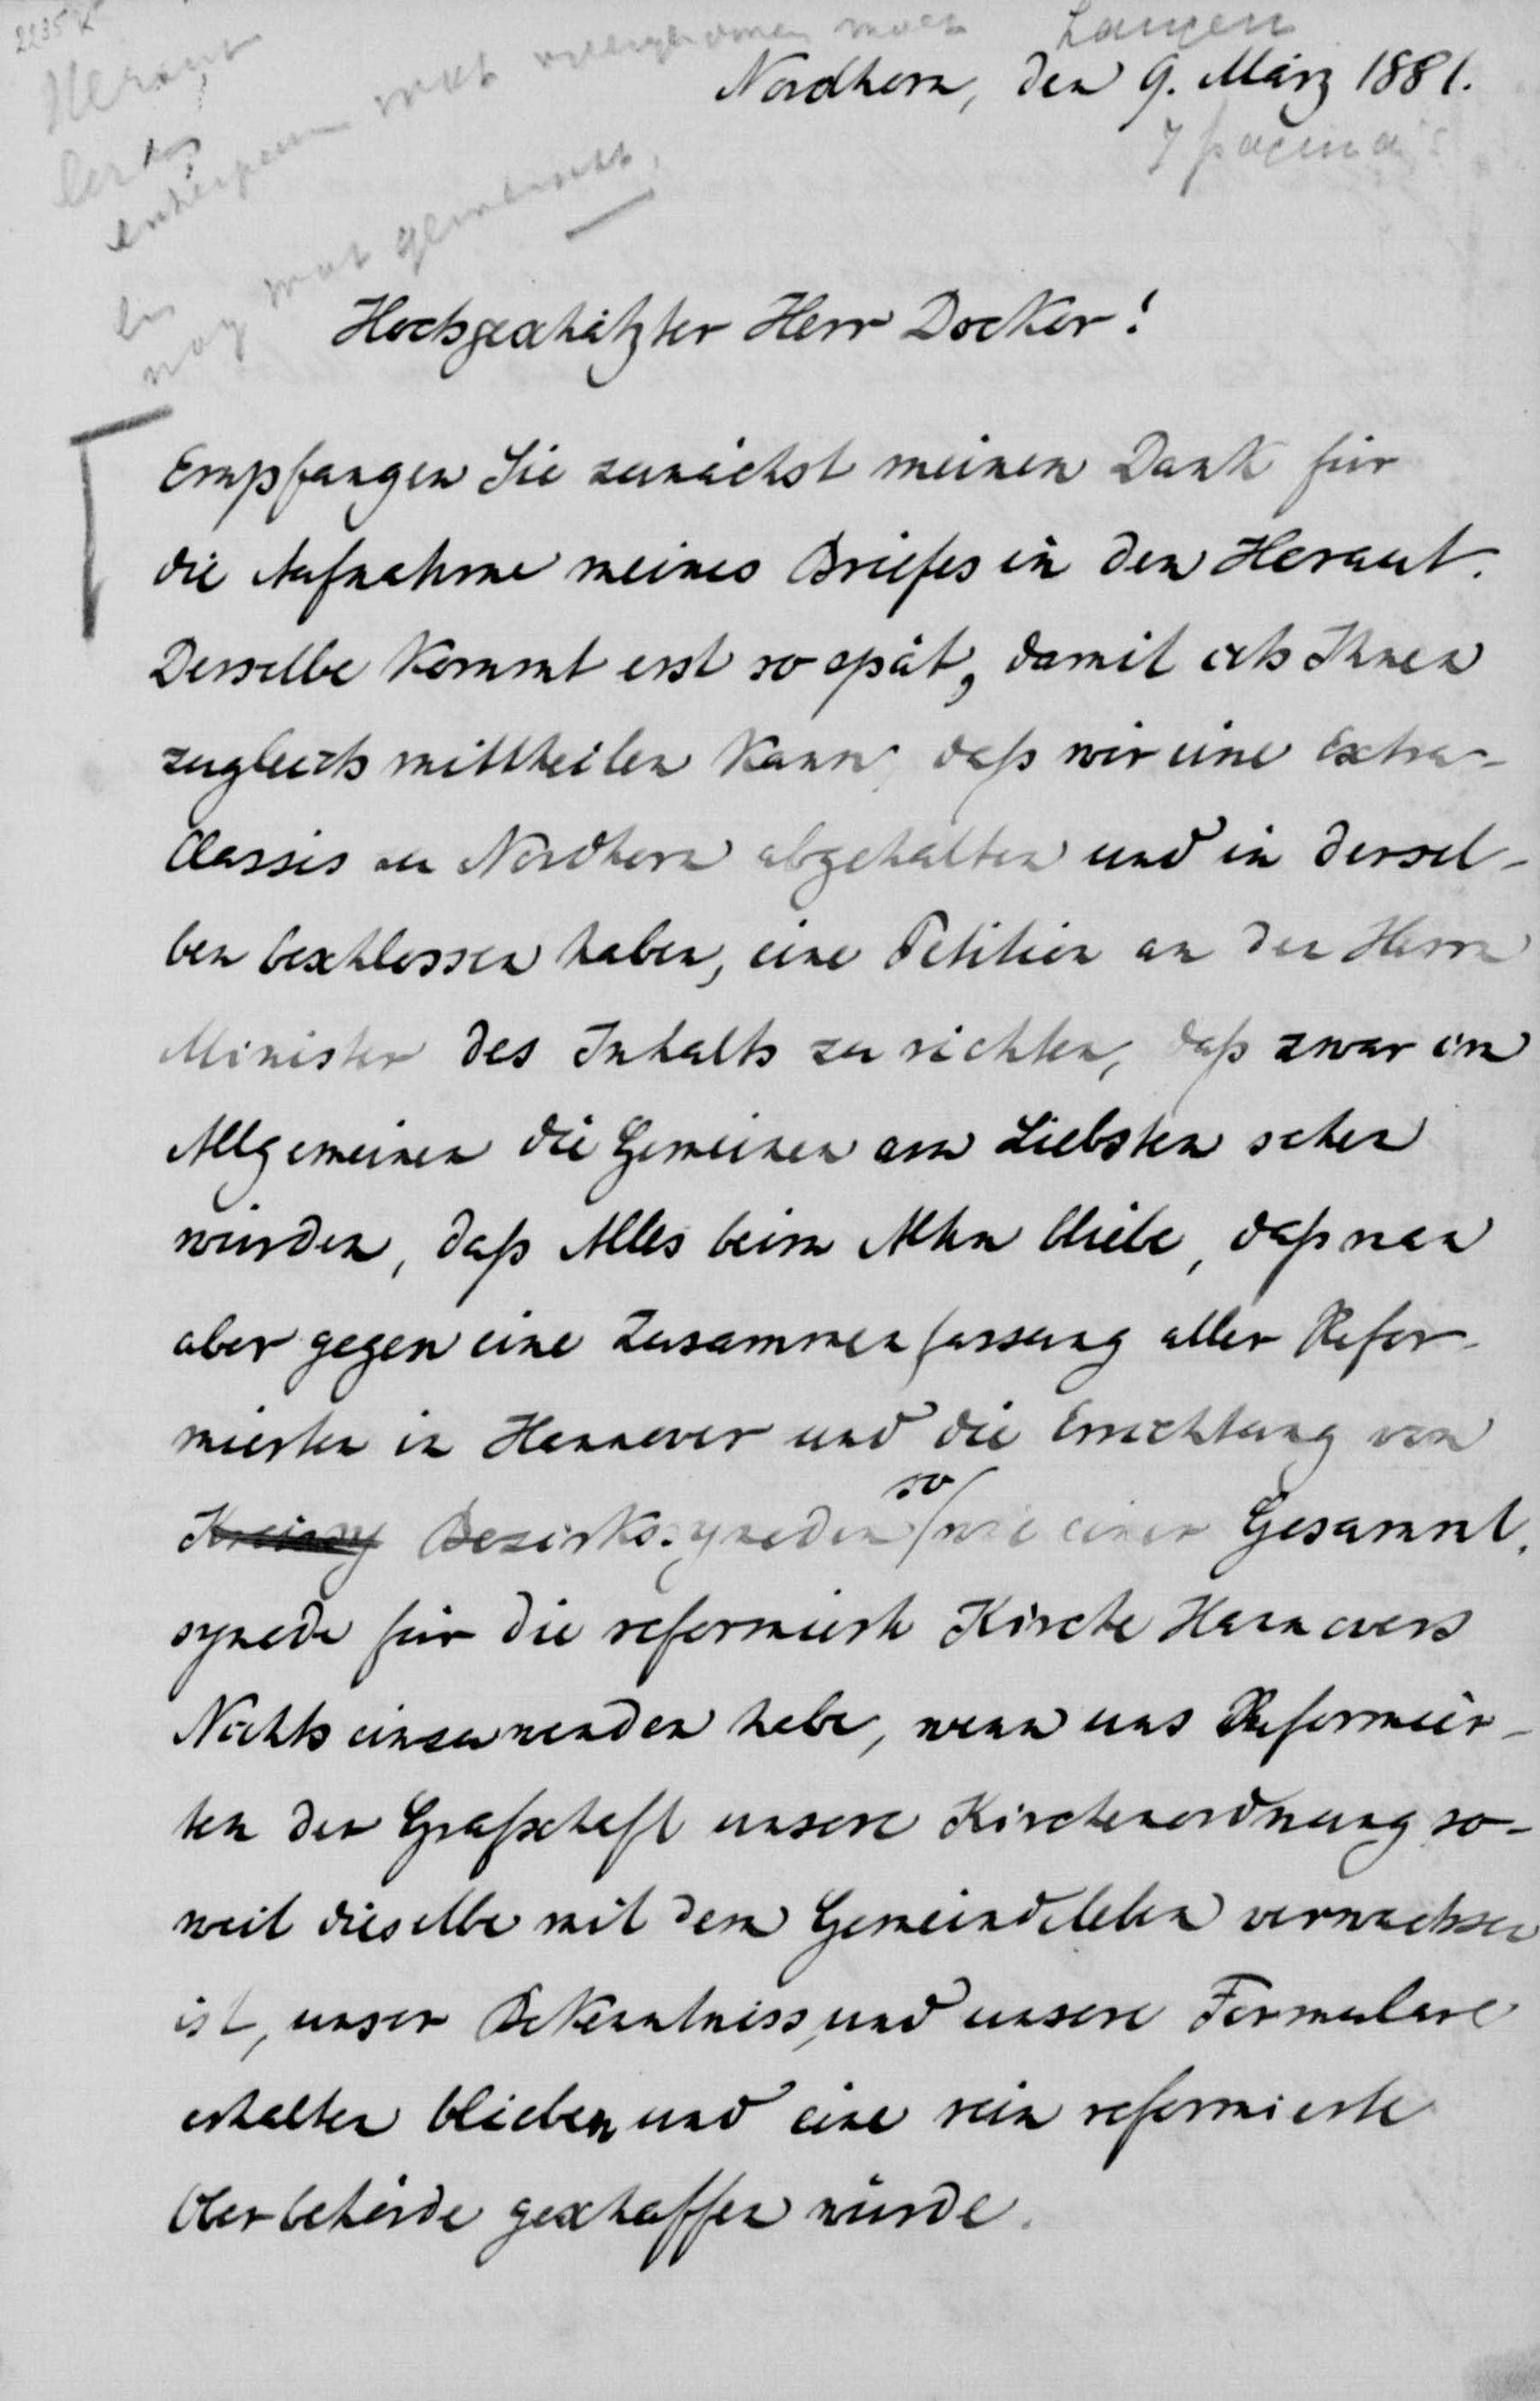 2235
Heraut
Langen
Nordhorn, den 9. März 1881.
7 pagina's
Hochgeschätzter Herr Doctor!
Empfangen Sie zunächst meinen Dank für
die Aufnahme meines Briefes in den Heraut.
Derselbe kommt erst so spät, damit ich Ihnen
zugleich mittheilen kann, daß wir eine Extra-
Classis zu Nordhorn abgehalten und in dersel-
ben beschlossen haben, eine Petition an den Herrn
Minister des Inhalts zu richten, daß zwar im
Allgemeinen die Gemeinen am Liebsten sehen
würden, daß Alles beim Alten bliebe, daß man
aber gegen eine Zusammenfassung aller Refor-
mierten in Hannover und die Errichtung von
Bezirkssynoden so wie einer Gesammt-
synode für die reformierte Kirche Hannovers
Nichts einzuwenden habe, wenn uns Reformier-
ten der Grafschaft unsere Kirchenordnung so-
weit dieselbe mit dem Gemeindeleben verwachsen
ist, unser Bekenntniss, und unsere Formulare
erhalten blieben und eine rein reformierte
Oberbehörde geschaffen würde.